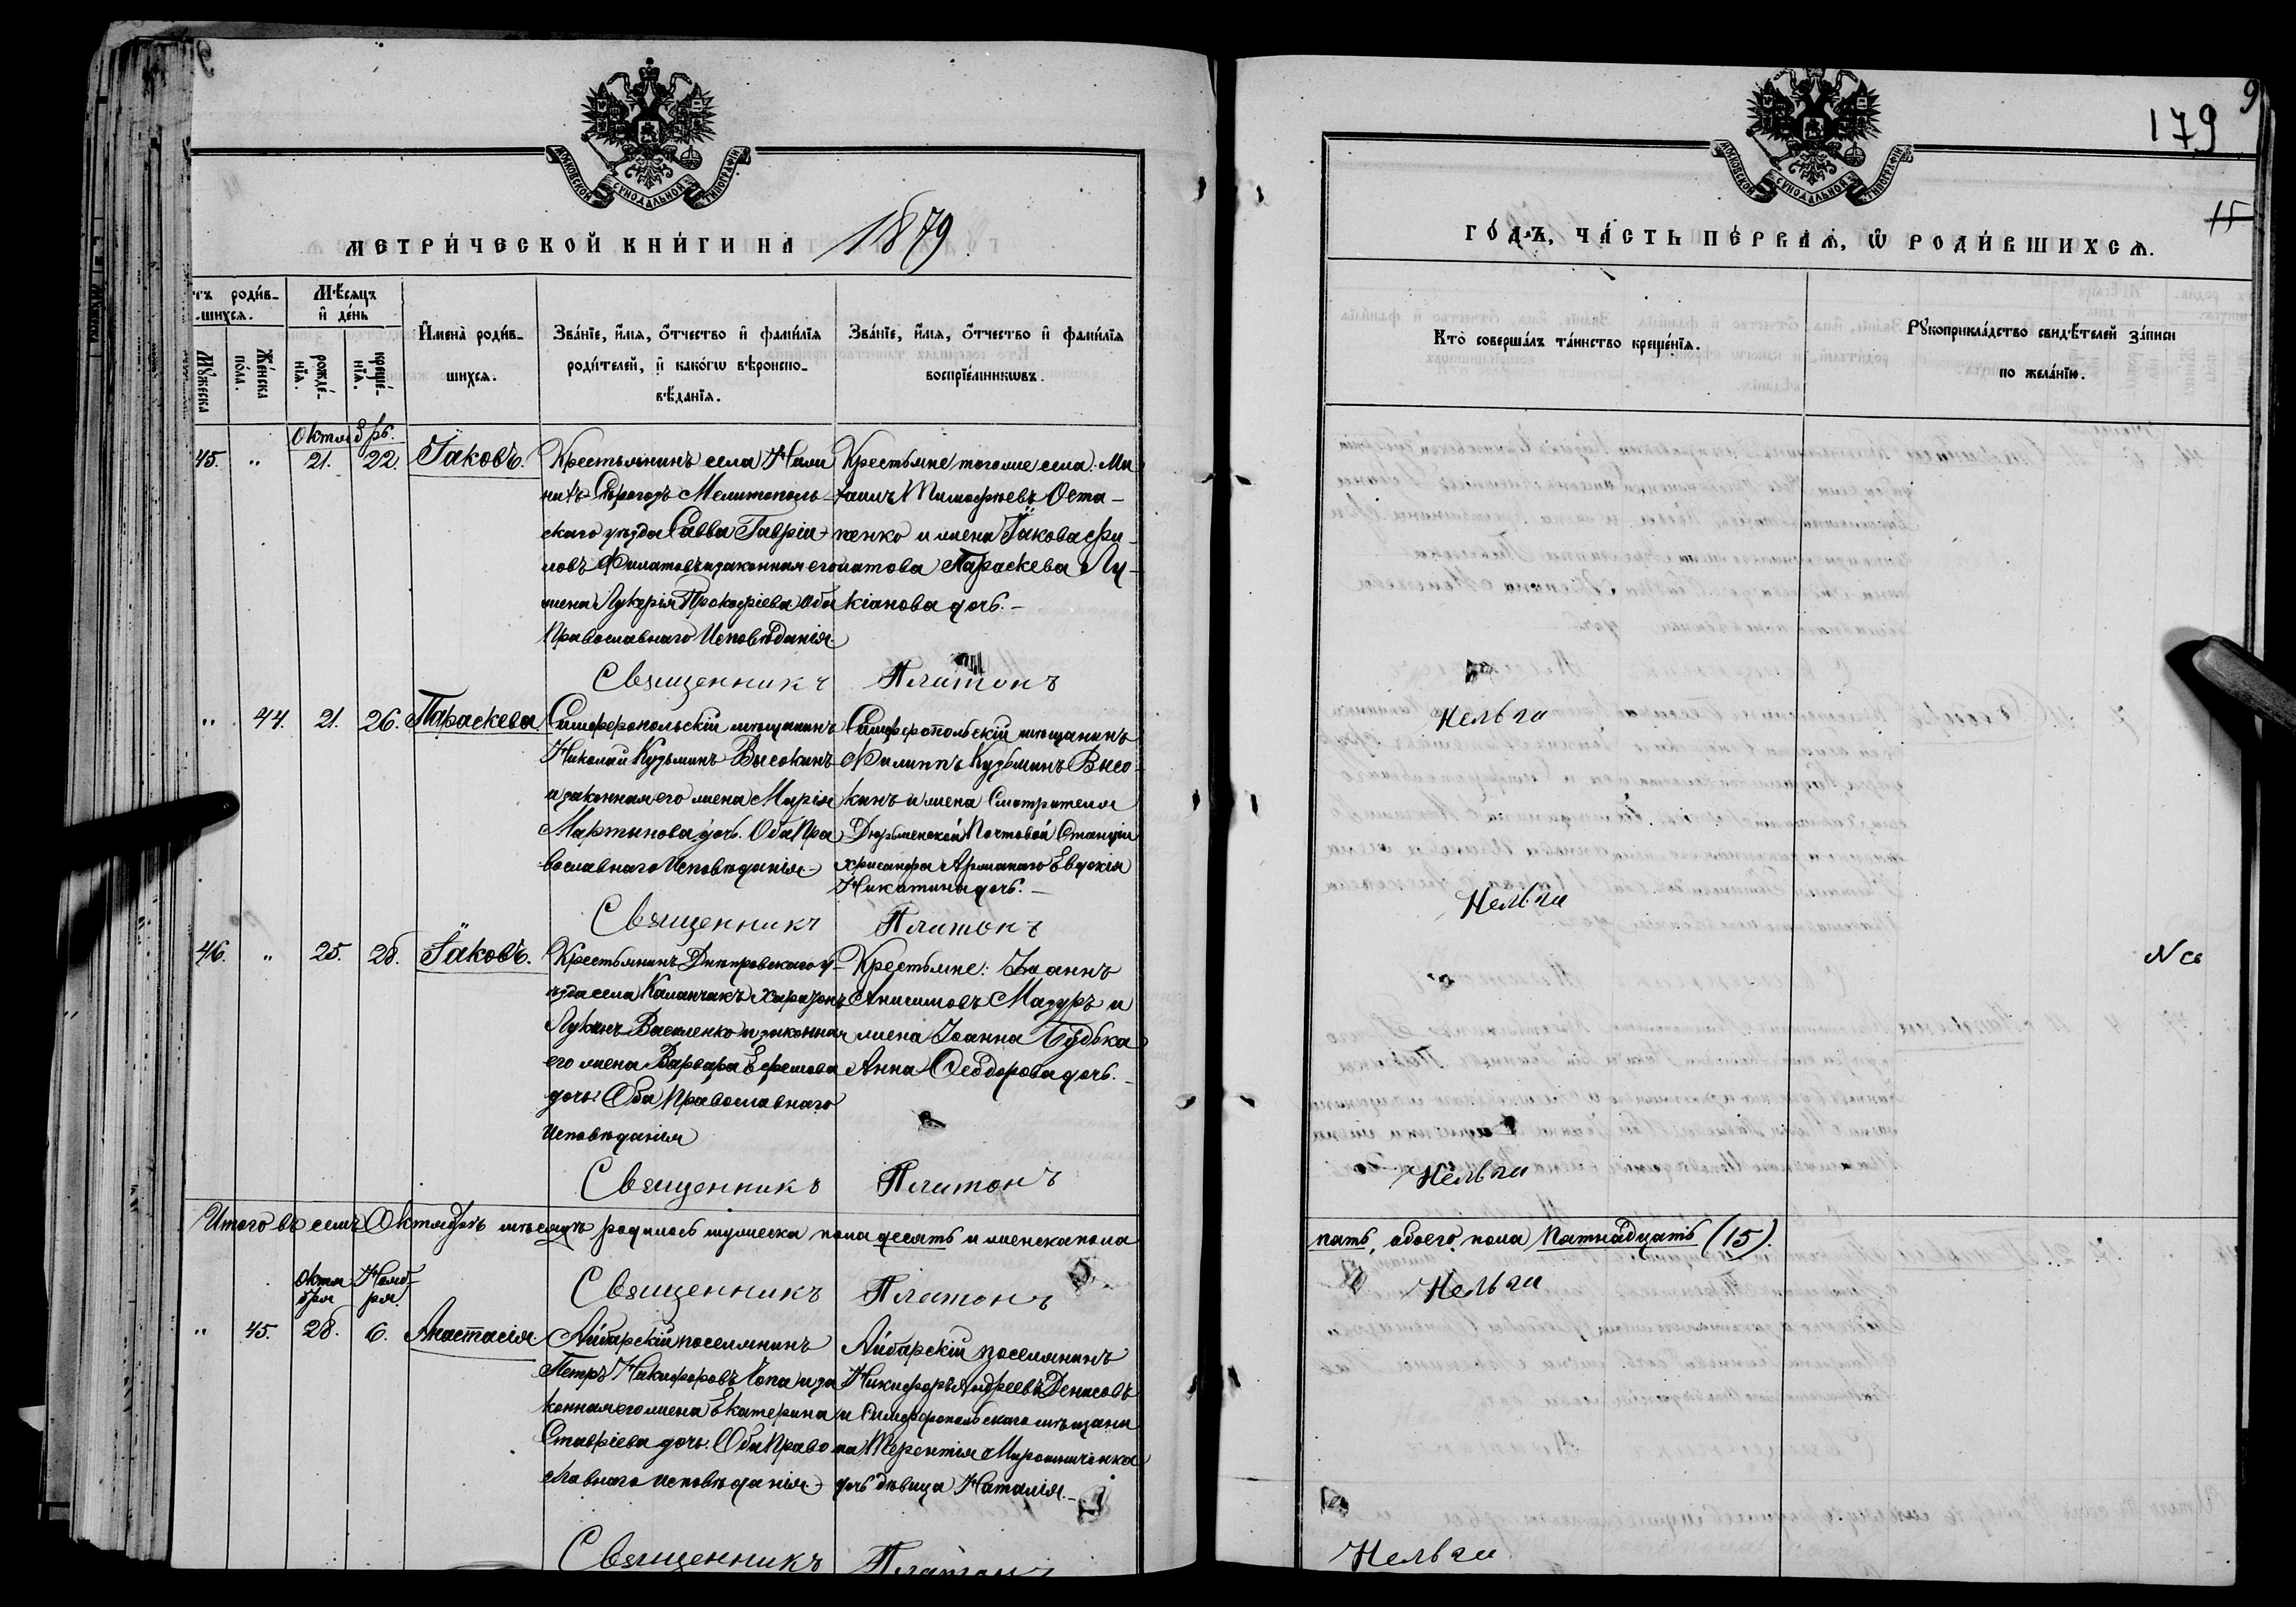 МОСКОВСКОЙ СѴНОДАЛЬНОЙ ТИПОГРАФІИ
МЕТРИ́ЧЕСКОЙ КНИ́ГИ НА 1879
тъ роди́в-
шихся.
Мѣ́сяцъ
и҆ де́нь
Мꙋ́жеска
Же́нска
по́ла.
рожде́-
нїя.
креще́-
нїя.
И҆мена̀ роди́в-
шихся.
Зва́нїе, и҆́мя, ѻ҆́тчество и҆ фами́лїя
роди́телей, и҆ како́гѡ вѣроиспо-
вѣ́данїя.
Зва́нїе, и҆́мя, ѻ҆́тчество и҆ фами́лїя
воспрїе́мникѡвъ.
Октябрь.
45. " 21. 22. Іаковъ.
Крестьянинъ села
Сѣрогозъ Мелитополь-
скаго уѣзда Савва Гавріи-
ловъ Филатовъ и законная его
жена Лукерія Прокофіева Оба
Православнаго Исповѣданія.
Крестьяне тогоже села: Ми-
хаилъ Тимофѣевъ Оста-
пенко и жена Іакова Фи-
латова Параскева Лу-
кіанова дочь.-
Священникъ Платонъ
" 44. 21. 26. Параскева.
Симферопольскій мѣщанинъ
Николай Кузьминъ Высокинъ
и законная его жена Марія
Мартынова дочь. Оба Пра
вославнаго Исповѣданія
Симферопольскій мѣщанинъ
Филиппъ Кузьминъ Высо-
кинъ и жена Смотрителя
Дюрменской Почтовой Станціи
Хрисанфа Евдокія
Никитина дочь.-
Священникъ Платонъ
46. " 25. 28. Іаковъ.
Крестьянинъ Днѣпровскаго у-
ѣзда села Каланчакъ Харитонъ
Лукинъ Василенко и законная
его жена Варвара Ефремова
дочь: Оба Православнаго
Исповѣданія
Крестьяне: Іоаннъ
Анисимовъ Мазуръ и
жена Іоанна Будька
Анна Ѳеодорова дочь.-
Священникъ Платонъ
Итого въ семъ Октябрѣ мѣсяцѣ родилось мужеска пола десять и женска пола
Октя
бря
Нояб-
ря.
Священникъ Платонъ
" 45. 28. 6. Анастасія
Айбарскій поселянинъ
Петръ Никифоровъ Попа и за
конная его жена Екатерина
Ставріева дочь. Оба Право
славнаго исповѣданія.
Айбарскій поселянинъ
Никифоръ Андреевъ Денисовъ
и Симферопольскаго мѣщани
на Терентія Мирошниченка
дочь дѣвица Наталія.-
Священникъ Платонъ
9
179
15
МОСКОВСКОЙ СѴНОДАЛЬНОЙ ТИПОГРАФІИ
ГО́ДЪ, ЧА́СТЬ ПЕ́РВАѦ, Ѡ҆ РОДИ́ВШИХСѦ.
Кто̀ соверша́лъ та́инство креще́нїя.
Рꙋкоприкла́дство свидѣ́телей за́писи
по жела́нїю.
Нельги
Нельги
Nо
Нельги
пять, обоего пола пятнадцать (15).
Нельги
Нельги